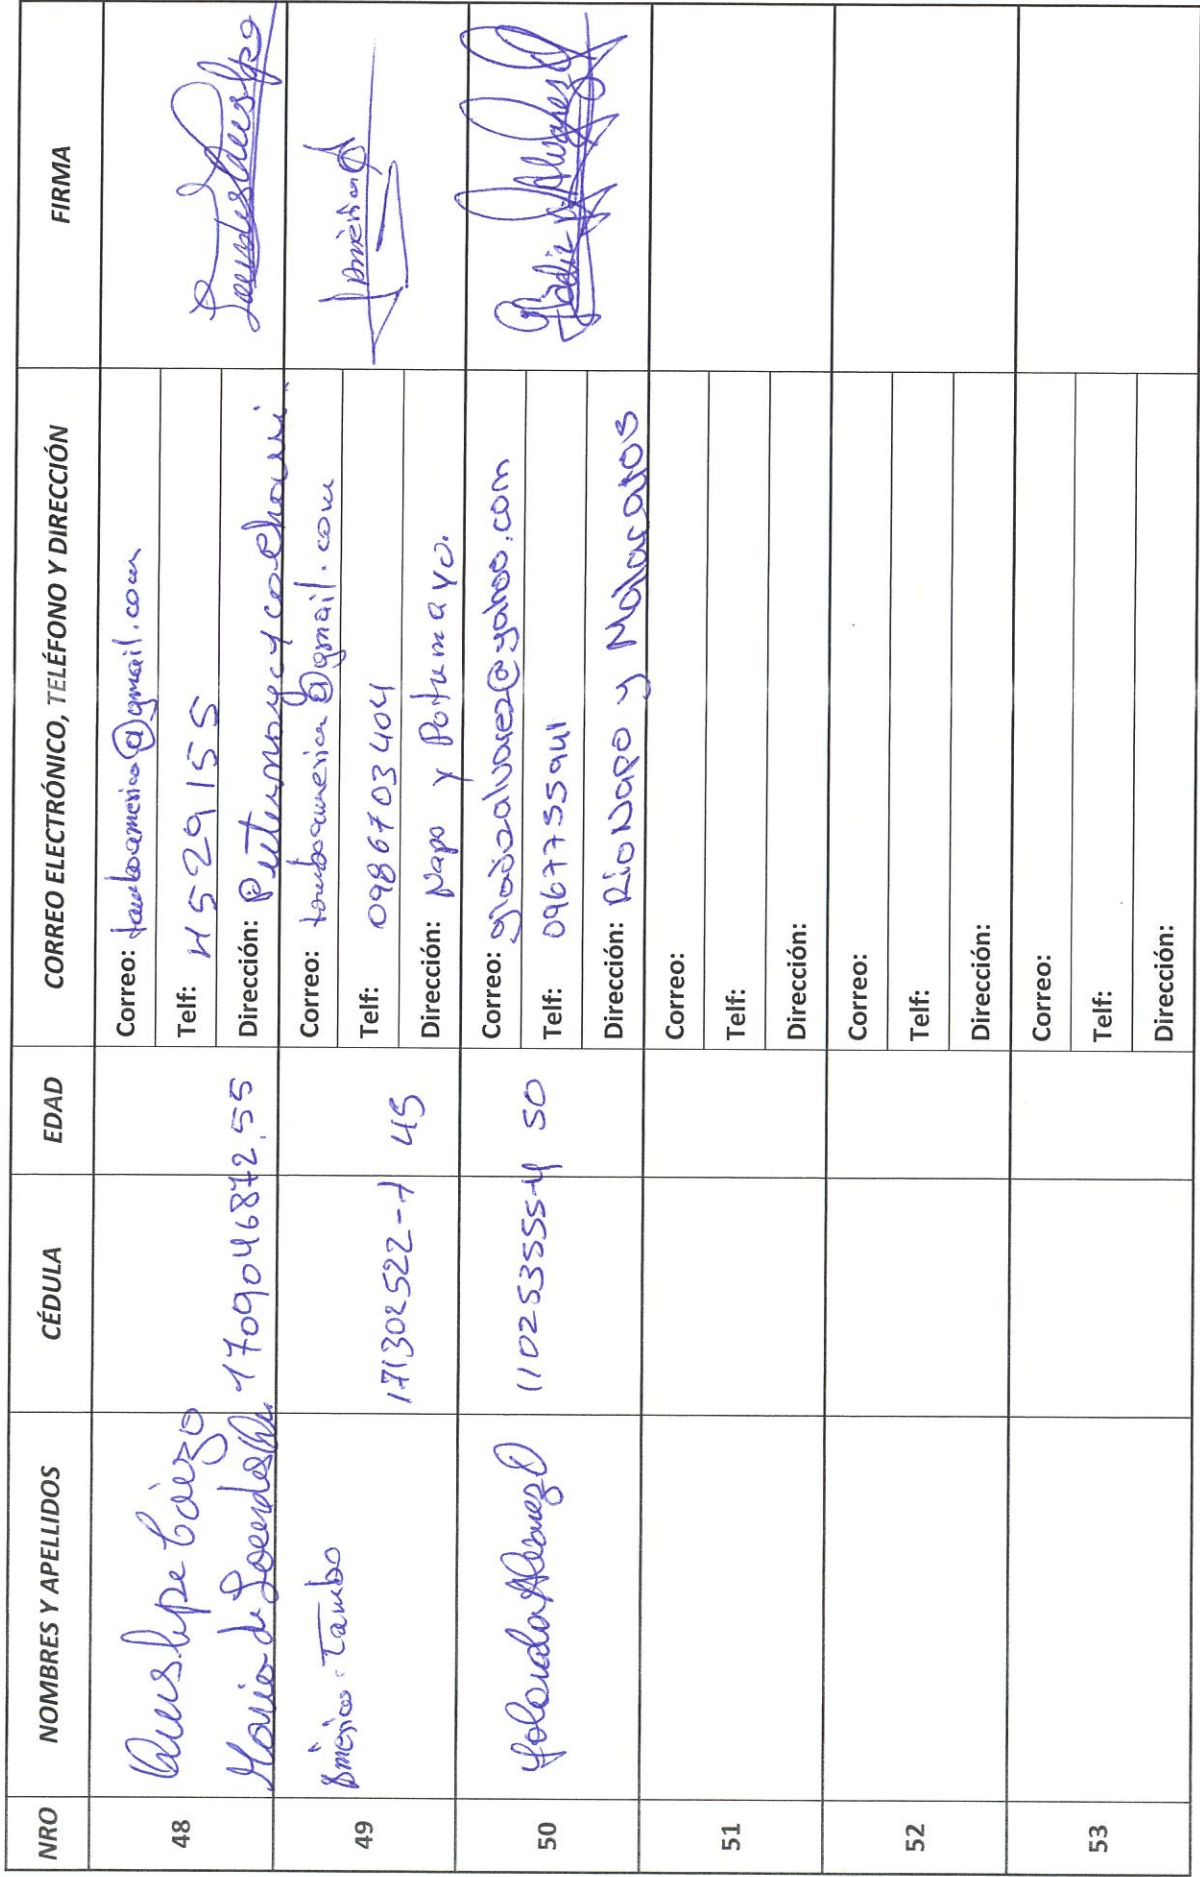 NRO NOMBRES Y APELLIDOS CÉDULA EDAD CORREO ELECTRÓNICO, TELÉFONO Y DIRECCIÓN FIRMA
48
Quishpe
María de Lourdes
1709046872
55
Correo: tamboamerica@gmail.com
Telf: 4529155
Dirección: Putumayo y
49
America Tambo
171302522-7
45
Correo: tamboamerica@gmail.com
Telf: 0986703404
Dirección: Napo y Potumayo.
50
Yolanda Alvarez O
110253555-4
50
Correo: @yahoo.com
Telf: 0967755941
Dirección: Rio Napo y Malacatos
51
Correo:
Telf:
Dirección:
52
Correo:
Telf:
Dirección:
53
Correo:
Telf:
Dirección: